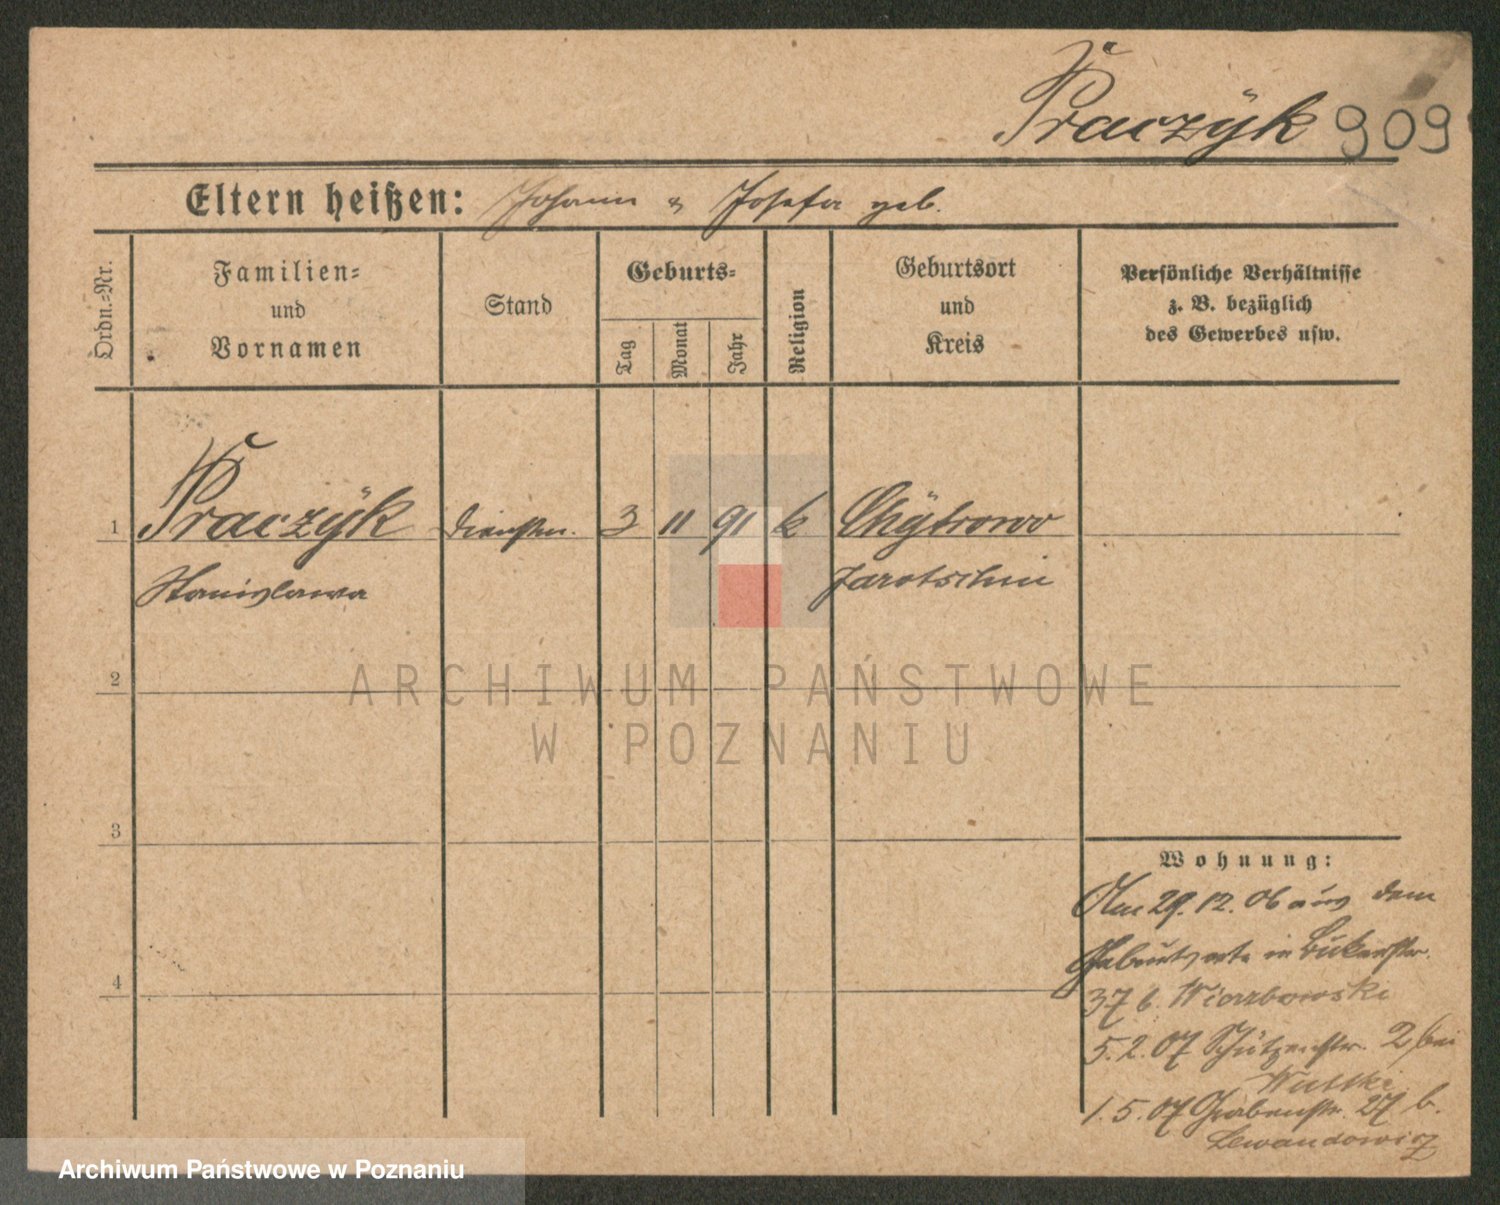 Praczÿk 909
Eltern heißen: Johann & Josefa geb.
Ordn.-Nr.
Familien-
und
Vornamen
Stand
Geburts-
Tag
Monat
Jahr
Religion
Geburtsort
und
Kreis
Persönliche Verhältnisse
z. B. bezüglich
des Gewerbes usw.
1 Praczÿk Dienstm. 3 11 91 k Chÿtrowo
Stanislawa Jarotschin
2
3
4
Wohnung:
Am 29.12.06 aus dem
Geburtsorte in Bukerstr.
37 b. Wierzbowski
5.2.07 Schützenstr. 2 bei
Wuttke
1.5.07 Grabenstr. 27 b.
Lewandowicz
ARCHIWUM PAŃSTWOWE
W POZNANIU
Archiwum Państwowe w Poznaniu